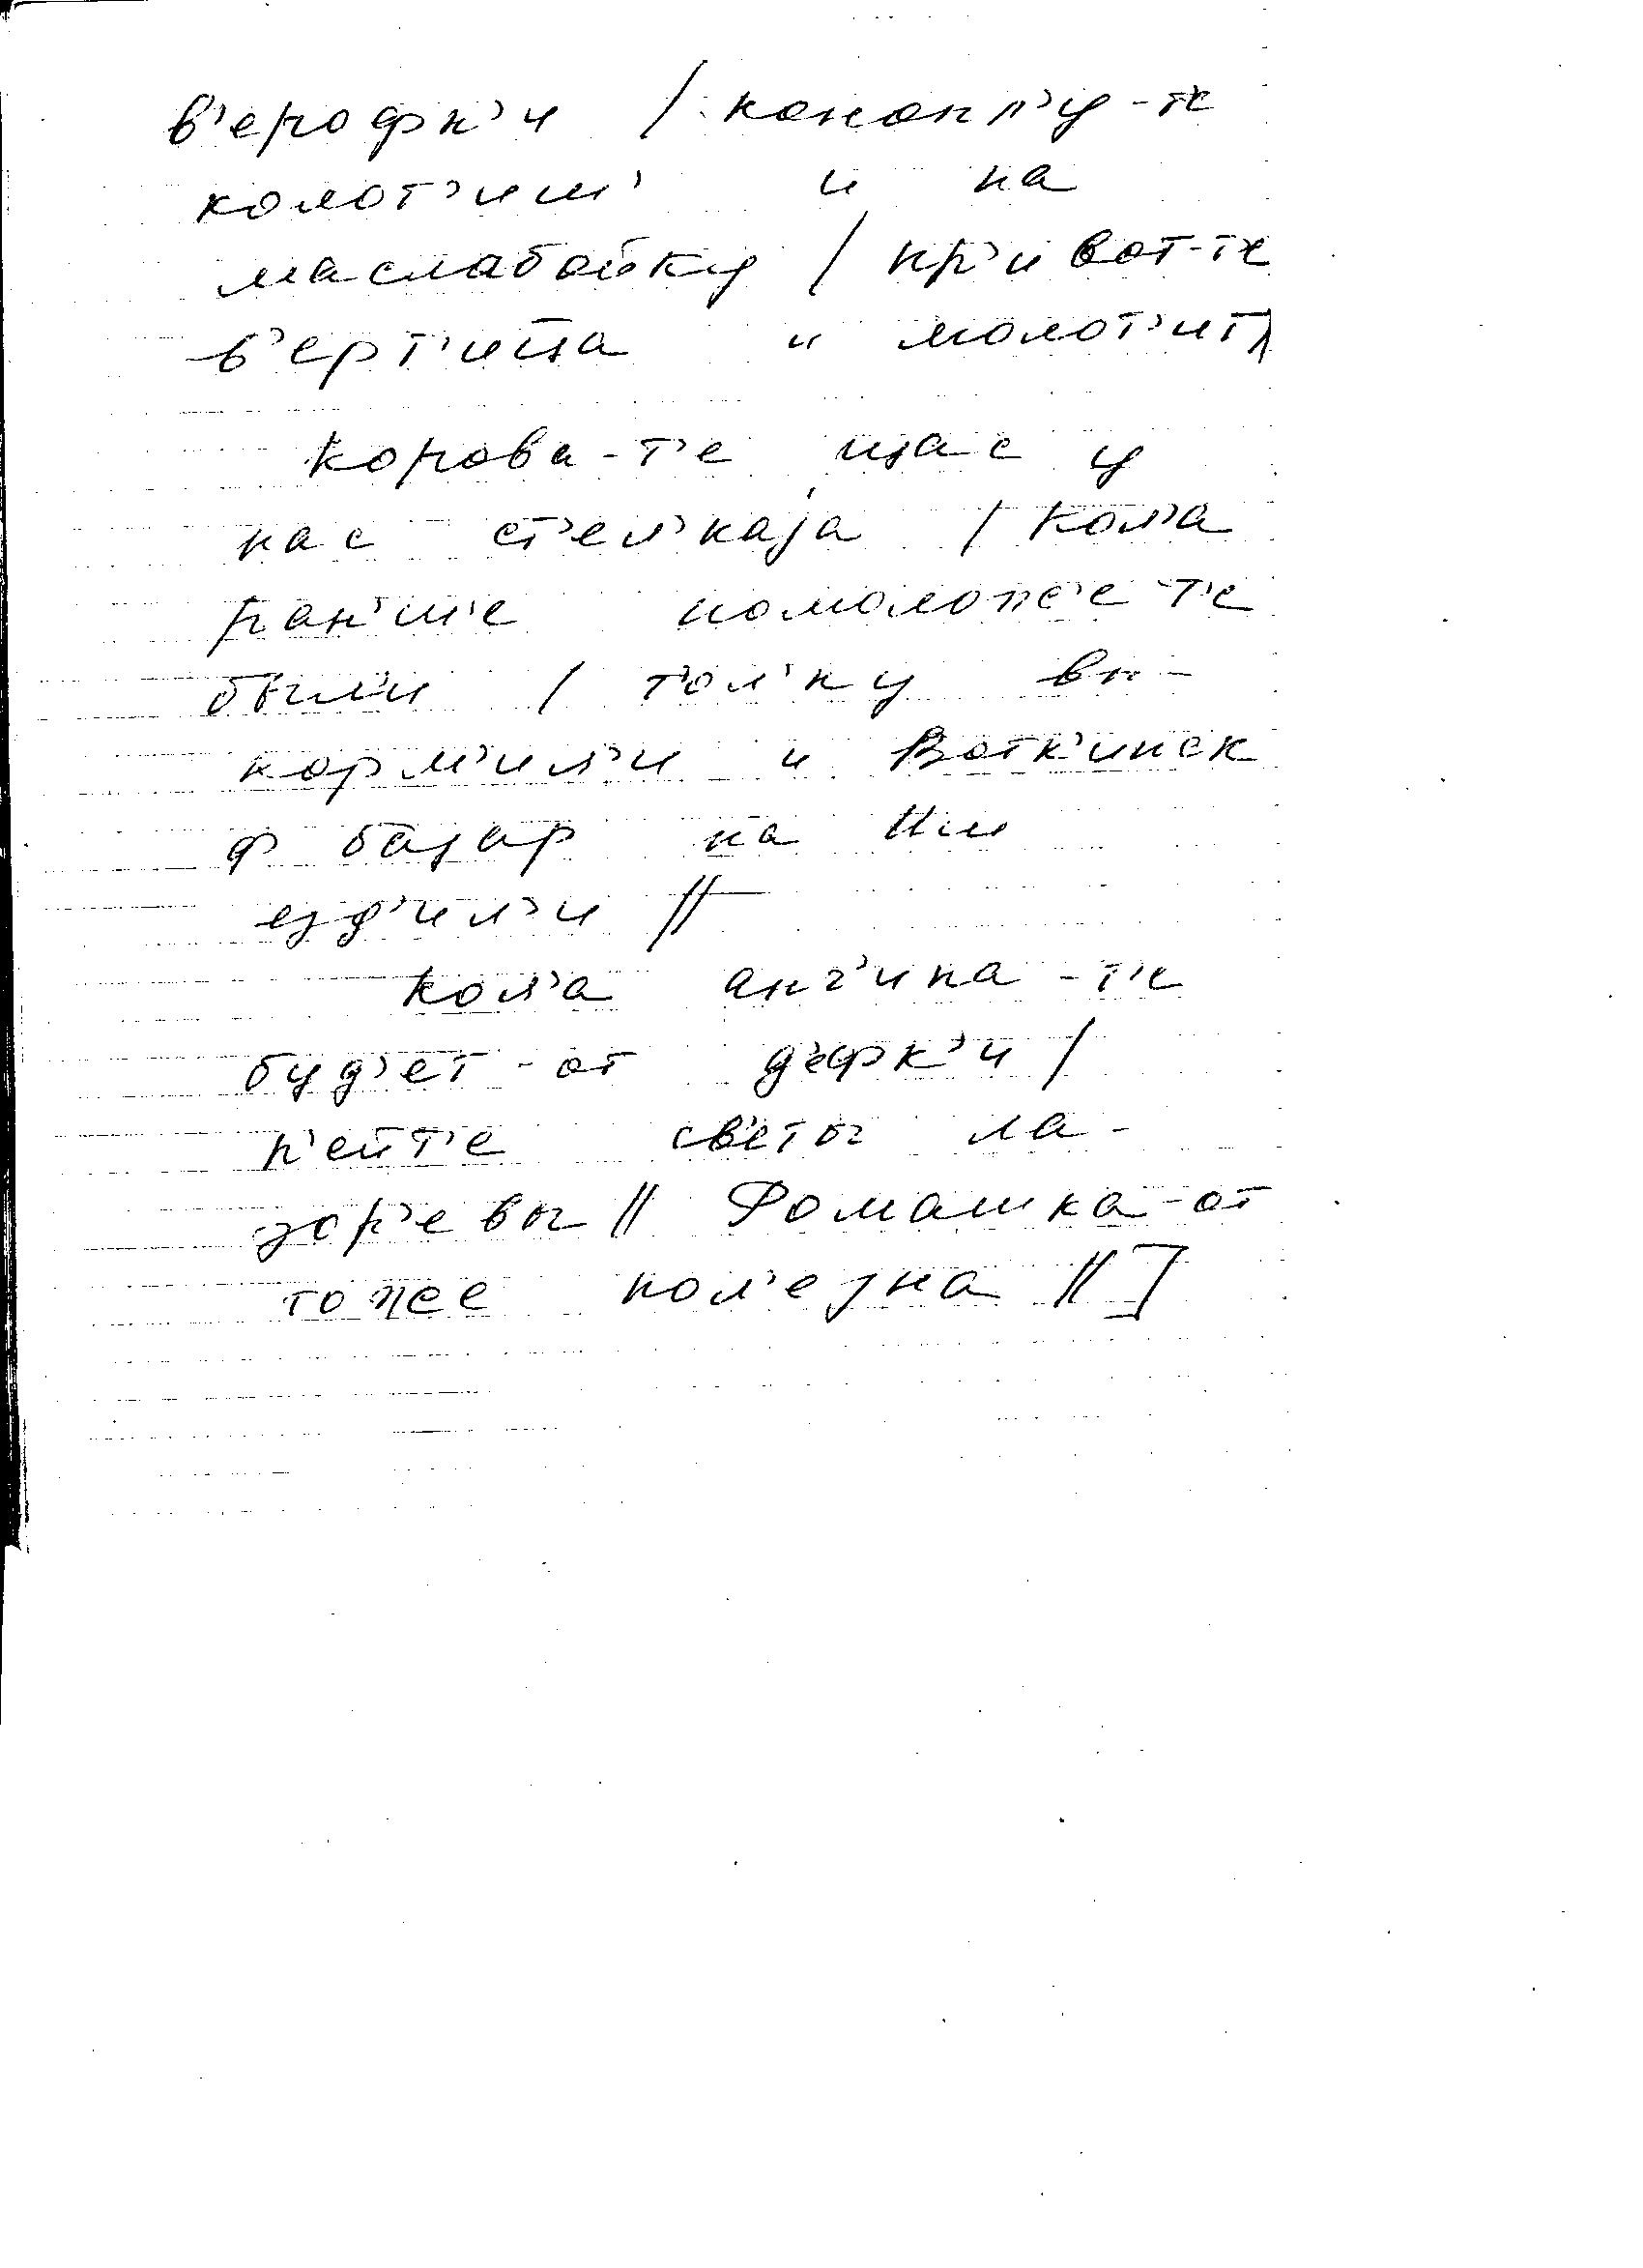 в'ерофк'и / конопл'у-т'е
колот'иш' и на
маслабойку / кр'и вот-т'е
в'ерт'ица и молот'ит /
Корова-т'е щас у
нас ст'ел'каjа / Кол'а
ран'ш'е помоложе-т'е
был'и / тол'ку вы-
корм'ил'и и Вотк'инск
ф базар на
езд'ил'и //
Кол'а анг'ина-т'е
буд'ет-от д'ефк'и /
п'ейт'е св'еты ла-
зор'евы // Ромашка-от
тоже пол'езна // ]